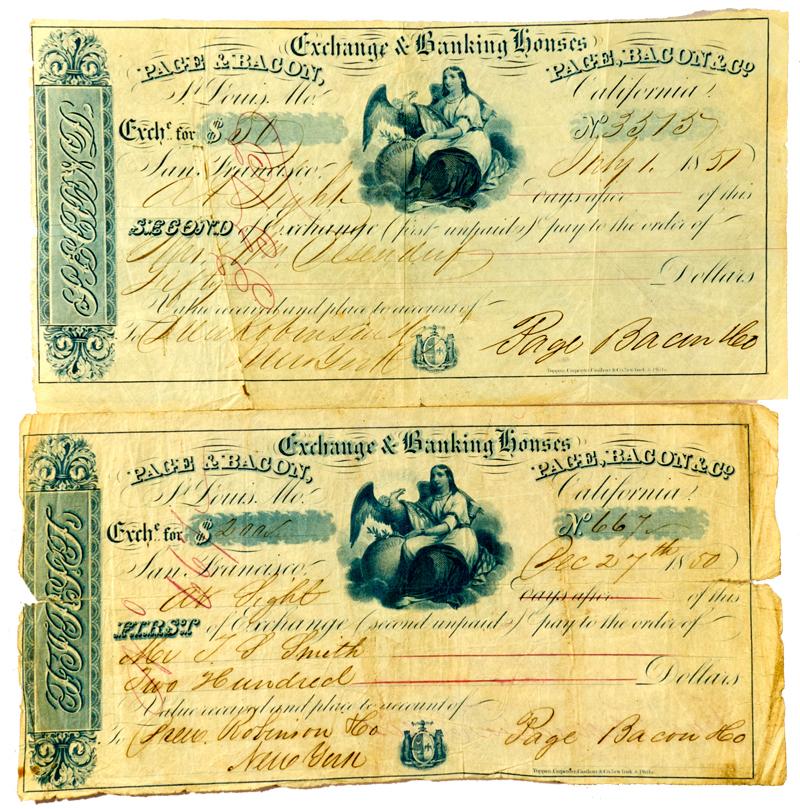 Exchange & Banking Houses
PAGE & BACON, PAGE, BACON & Co
St. Louis, Mo. California.
Exche. for $ 50 No. 3515
San Francisco, July 1. 1851
At Sight days after of this
SECOND of Exchange (first unpaid) pay to the order of
Fifty Dollars
Value received and place to account of
To Robinson & Co Page Bacon & Co
New York
Toppan, Carpenter, Casilear & Co. New York & Phila.
Exchange & Banking Houses
PAGE & BACON, PAGE, BACON & Co
St. Louis, Mo. California.
Exche. for $ 200 No. 667
San Francisco, Dec 27th 1850
At Sight days after of this
FIRST of Exchange (second unpaid) pay to the order of
Mr T. S Smith
Two Hundred Dollars
Value received and place to account of
To Robinson & Co Page Bacon & Co
New York
Toppan, Carpenter, Casilear & Co. New York & Phila.